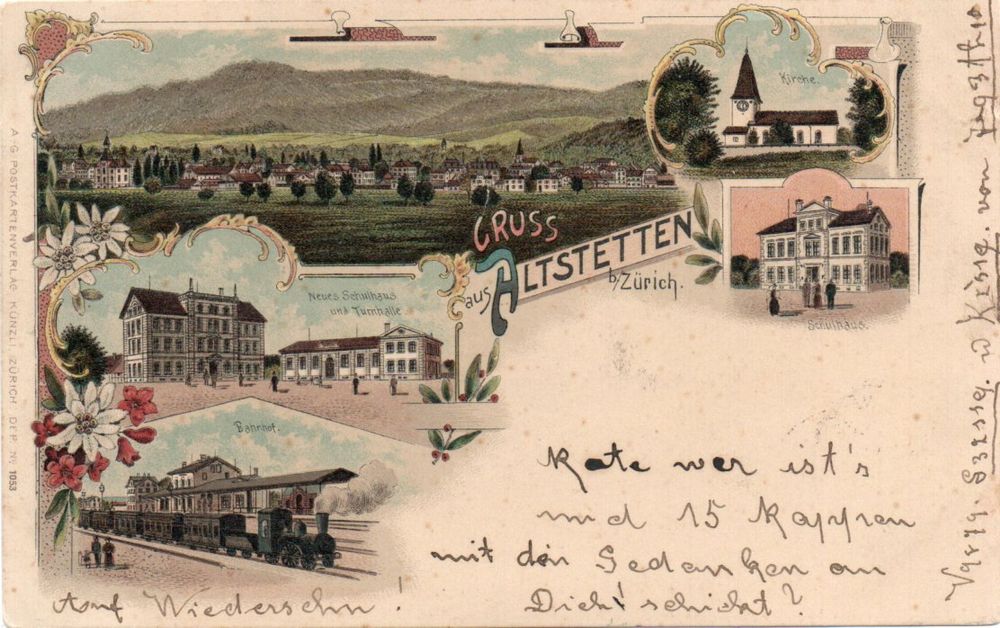 Kirche.
GRUSS
aus ALTSTETTEN
b/Zürich.
Schulhaus.
Neues Schulhaus
und Turnhalle
Bahnhof.
A-G. POSTKARTENVERLAG KÜNZLI, ZÜRICH. DEP. No 1053
Rate wer ist's
und 15 Rappen
mit den Gedanken an
Dich! schickt?
Auf Wiedersehn!
von